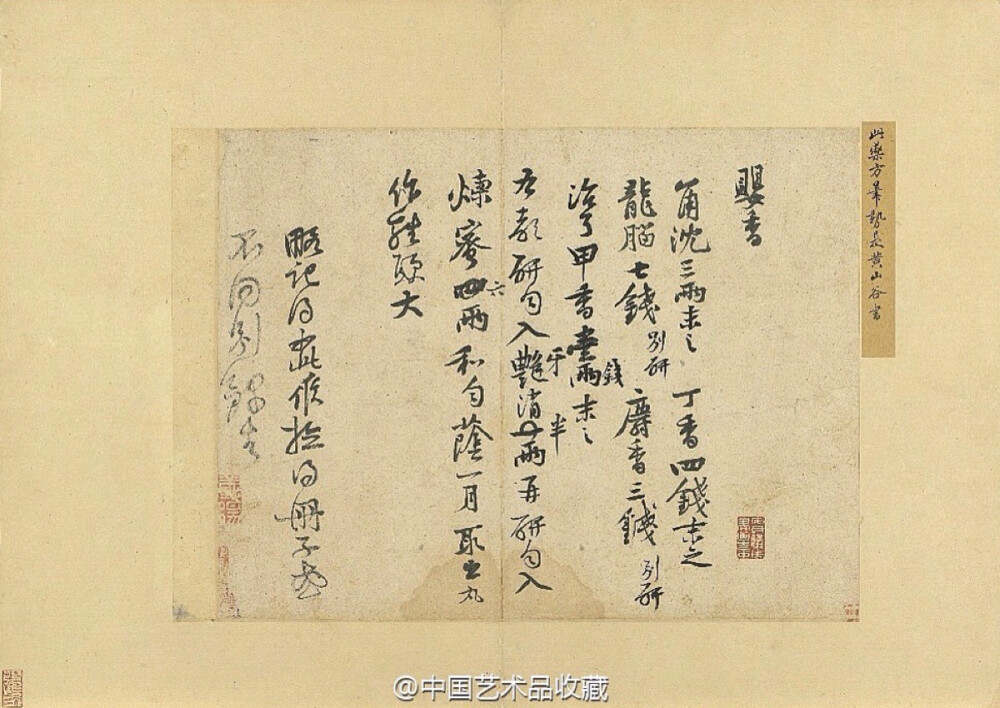 此藥方筆勢是黃山谷書
嬰香
角沈三兩末之 丁香四錢末之
龍腦七錢別研 麝香三錢別研
治了甲香壹兩錢末之
右都研勻入艷牙消半兩再研勻入
煉蜜四六兩和勻蔭一月取出丸
作雞頭大
略記得此候檢得冊子或
不同別錄去
@中国艺术品收藏